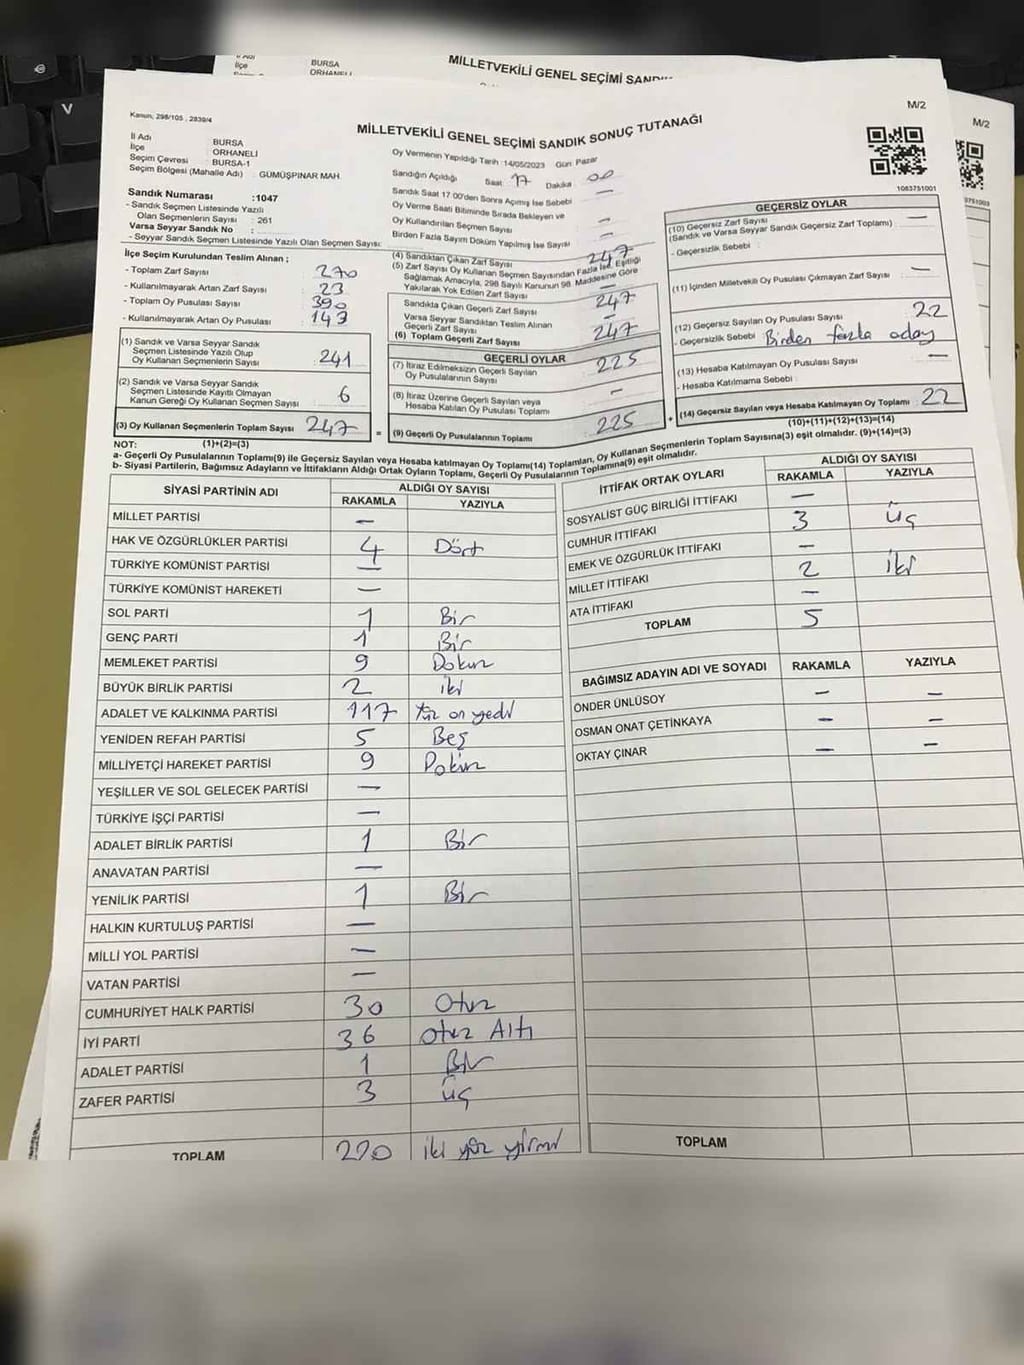 İlçe
BURSA
ORHANELİ
MİLLETVEKİLİ GENEL SEÇİMİ
M/2
M/2
Kanun, 298/105 , 2839/4
MİLLETVEKİLİ GENEL SEÇİMİ SANDIK SONUÇ TUTANAĞI
İl Adı BURSA
İlçe ORHANELİ
Seçim Çevresi BURSA-1
Seçim Bölgesi (Mahalle Adı) : GÜMÜŞPINAR MAH
Sandık Numarası :1047
- Sandık Seçmen Listesinde Yazılı
Olan Seçmenlerin Sayısı : 261
Varsa Seyyar Sandık No :
- Seyyar Sandık Seçmen Listesinde Yazılı Olan Seçmen Sayısı:
Oy Vermenin Yapıldığı Tarih :14/05/2023 Gün: Pazar
Sandığın Açıldığı Saat 17 Dakika 00
Sandık Saat 17.00'den Sonra Açılmış İse Sebebi —
Oy Verme Saati Bitiminde Sırada Bekleyen ve
Oy Kullandırılan Seçmen Sayısı —
Birden Fazla Sayım Döküm Yapılmış İse Sayısı —
1083751001
İlçe Seçim Kurulundan Teslim Alınan ;
- Toplam Zarf Sayısı : 270
- Kullanılmayarak Artan Zarf Sayısı : 23
- Toplam Oy Pusulası Sayısı : 390
- Kullanılmayarak Artan Oy Pusulası : 143
(1) Sandık ve Varsa Seyyar Sandık
Seçmen Listesinde Yazılı Olup
Oy Kullanan Seçmenlerin Sayısı : 241
(2) Sandık ve Varsa Seyyar Sandık
Seçmen Listesinde Kayıtlı Olmayan
Kanun Gereği Oy Kullanan Seçmen Sayısı : 6
(3) Oy Kullanan Seçmenlerin Toplam Sayısı : 247
(4) Sandıktan Çıkan Zarf Sayısı 247
(5) Zarf Sayısı Oy Kullanan Seçmen Sayısından Fazla İse, Eşitliği
Sağlamak Amacıyla, 298 Sayılı Kanunun 98. Maddesine Göre
Yakılarak Yok Edilen Zarf Sayısı —
Sandıkta Çıkan Geçerli Zarf Sayısı 247
Varsa Seyyar Sandıktan Teslim Alınan
Geçerli Zarf Sayısı —
(6) Toplam Geçerli Zarf Sayısı 247
GEÇERLİ OYLAR
(7) İtiraz Edilmeksizin Geçerli Sayılan
Oy Pusulalarının Sayısı 225
(8) İtiraz Üzerine Geçerli Sayılan veya
Hesaba Katılan Oy Pusulası Toplamı —
= (9) Geçerli Oy Pusulalarının Toplamı 225 +
GEÇERSİZ OYLAR
(10) Geçersiz Zarf Sayısı
(Sandık ve Varsa Seyyar Sandık Geçersiz Zarf Toplamı) —
- Geçersizlik Sebebi :
(11) İçinden Milletvekili Oy Pusulası Çıkmayan Zarf Sayısı —
(12) Geçersiz Sayılan Oy Pusulası Sayısı 22
- Geçersizlik Sebebi Birden fazla aday
(13) Hesaba Katılmayan Oy Pusulası Sayısı —
- Hesaba Katılmama Sebebi :
(14) Geçersiz Sayılan veya Hesaba Katılmayan Oy Toplamı 22
(10)+(11)+(12)+(13)=(14)
NOT: (1)+(2)=(3)
a- Geçerli Oy Pusulalarının Toplamı(9) ile Geçersiz Sayılan veya Hesaba katılmayan Oy Toplamı(14) Toplamları, Oy Kullanan Seçmenlerin Toplam Sayısına(3) eşit olmalıdır. (9)+(14)=(3)
b- Siyasi Partilerin, Bağımsız Adayların ve İttifakların Aldığı Ortak Oyların Toplamı, Geçerli Oy Pusulalarının Toplamına(9) eşit olmalıdır.
SİYASİ PARTİNİN ADI ALDIĞI OY SAYISI
RAKAMLA YAZIYLA
MİLLET PARTİSİ —
HAK VE ÖZGÜRLÜKLER PARTİSİ 4 Dört
TÜRKİYE KOMÜNİST PARTİSİ —
TÜRKİYE KOMÜNİST HAREKETİ —
SOL PARTİ 1 Bir
GENÇ PARTİ 1 Bir
MEMLEKET PARTİSİ 9 Dokuz
BÜYÜK BİRLİK PARTİSİ 2 iki
ADALET VE KALKINMA PARTİSİ 117 yüz on yedi
YENİDEN REFAH PARTİSİ 5 Beş
MİLLİYETÇİ HAREKET PARTİSİ 9 Dokuz
YEŞİLLER VE SOL GELECEK PARTİSİ —
TÜRKİYE İŞÇİ PARTİSİ —
ADALET BİRLİK PARTİSİ 1 Bir
ANAVATAN PARTİSİ —
YENİLİK PARTİSİ 1 Bir
HALKIN KURTULUŞ PARTİSİ —
MİLLİ YOL PARTİSİ —
VATAN PARTİSİ —
CUMHURİYET HALK PARTİSİ 30 Otuz
İYİ PARTİ 36 Otuz Altı
ADALET PARTİSİ 1 Bir
ZAFER PARTİSİ 3 üç
TOPLAM 220 iki yüz yirmi
İTTİFAK ORTAK OYLARI ALDIĞI OY SAYISI
RAKAMLA YAZIYLA
SOSYALİST GÜÇ BİRLİĞİ İTTİFAKI —
CUMHUR İTTİFAKI 3 üç
EMEK VE ÖZGÜRLÜK İTTİFAKI —
MİLLET İTTİFAKI 2 iki
ATA İTTİFAKI —
TOPLAM 5
BAĞIMSIZ ADAYIN ADI VE SOYADI RAKAMLA YAZIYLA
ÖNDER ÜNLÜSOY — —
OSMAN ONAT ÇETİNKAYA — —
OKTAY ÇINAR — —
TOPLAM